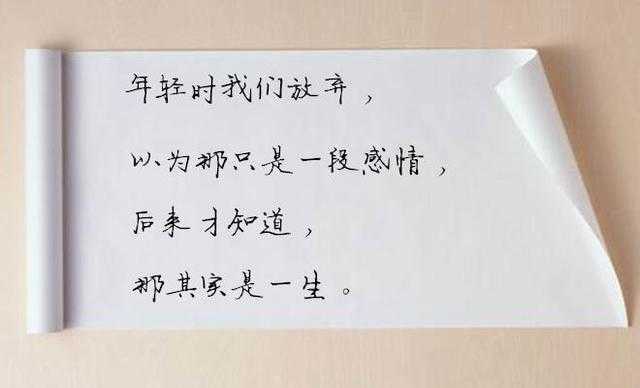 年轻时我们放弃，
以为那只是一段感情，
后来才知道，
那其实是一生。